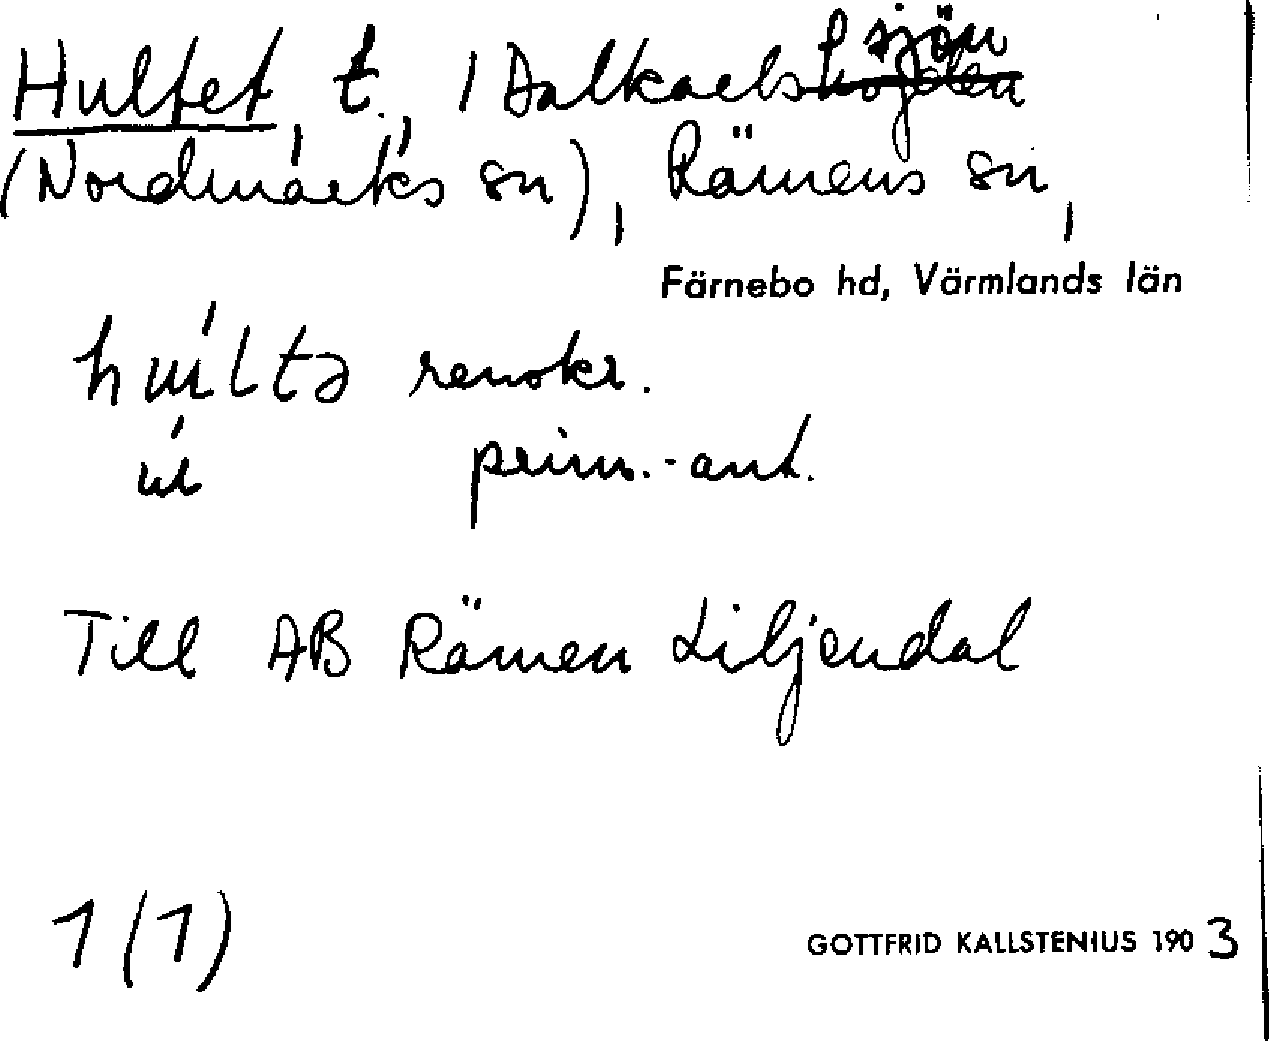 Hultet, t., 1 Dalkarlssjön
(Nordmarks sn), Rämens sn,
Färnebo hd, Värmlands län
hultə renskr.
u prim.-ant.
Till AB Rämen Liljendal
1 (1)
GOTTFRID KALLSTENIUS 1903